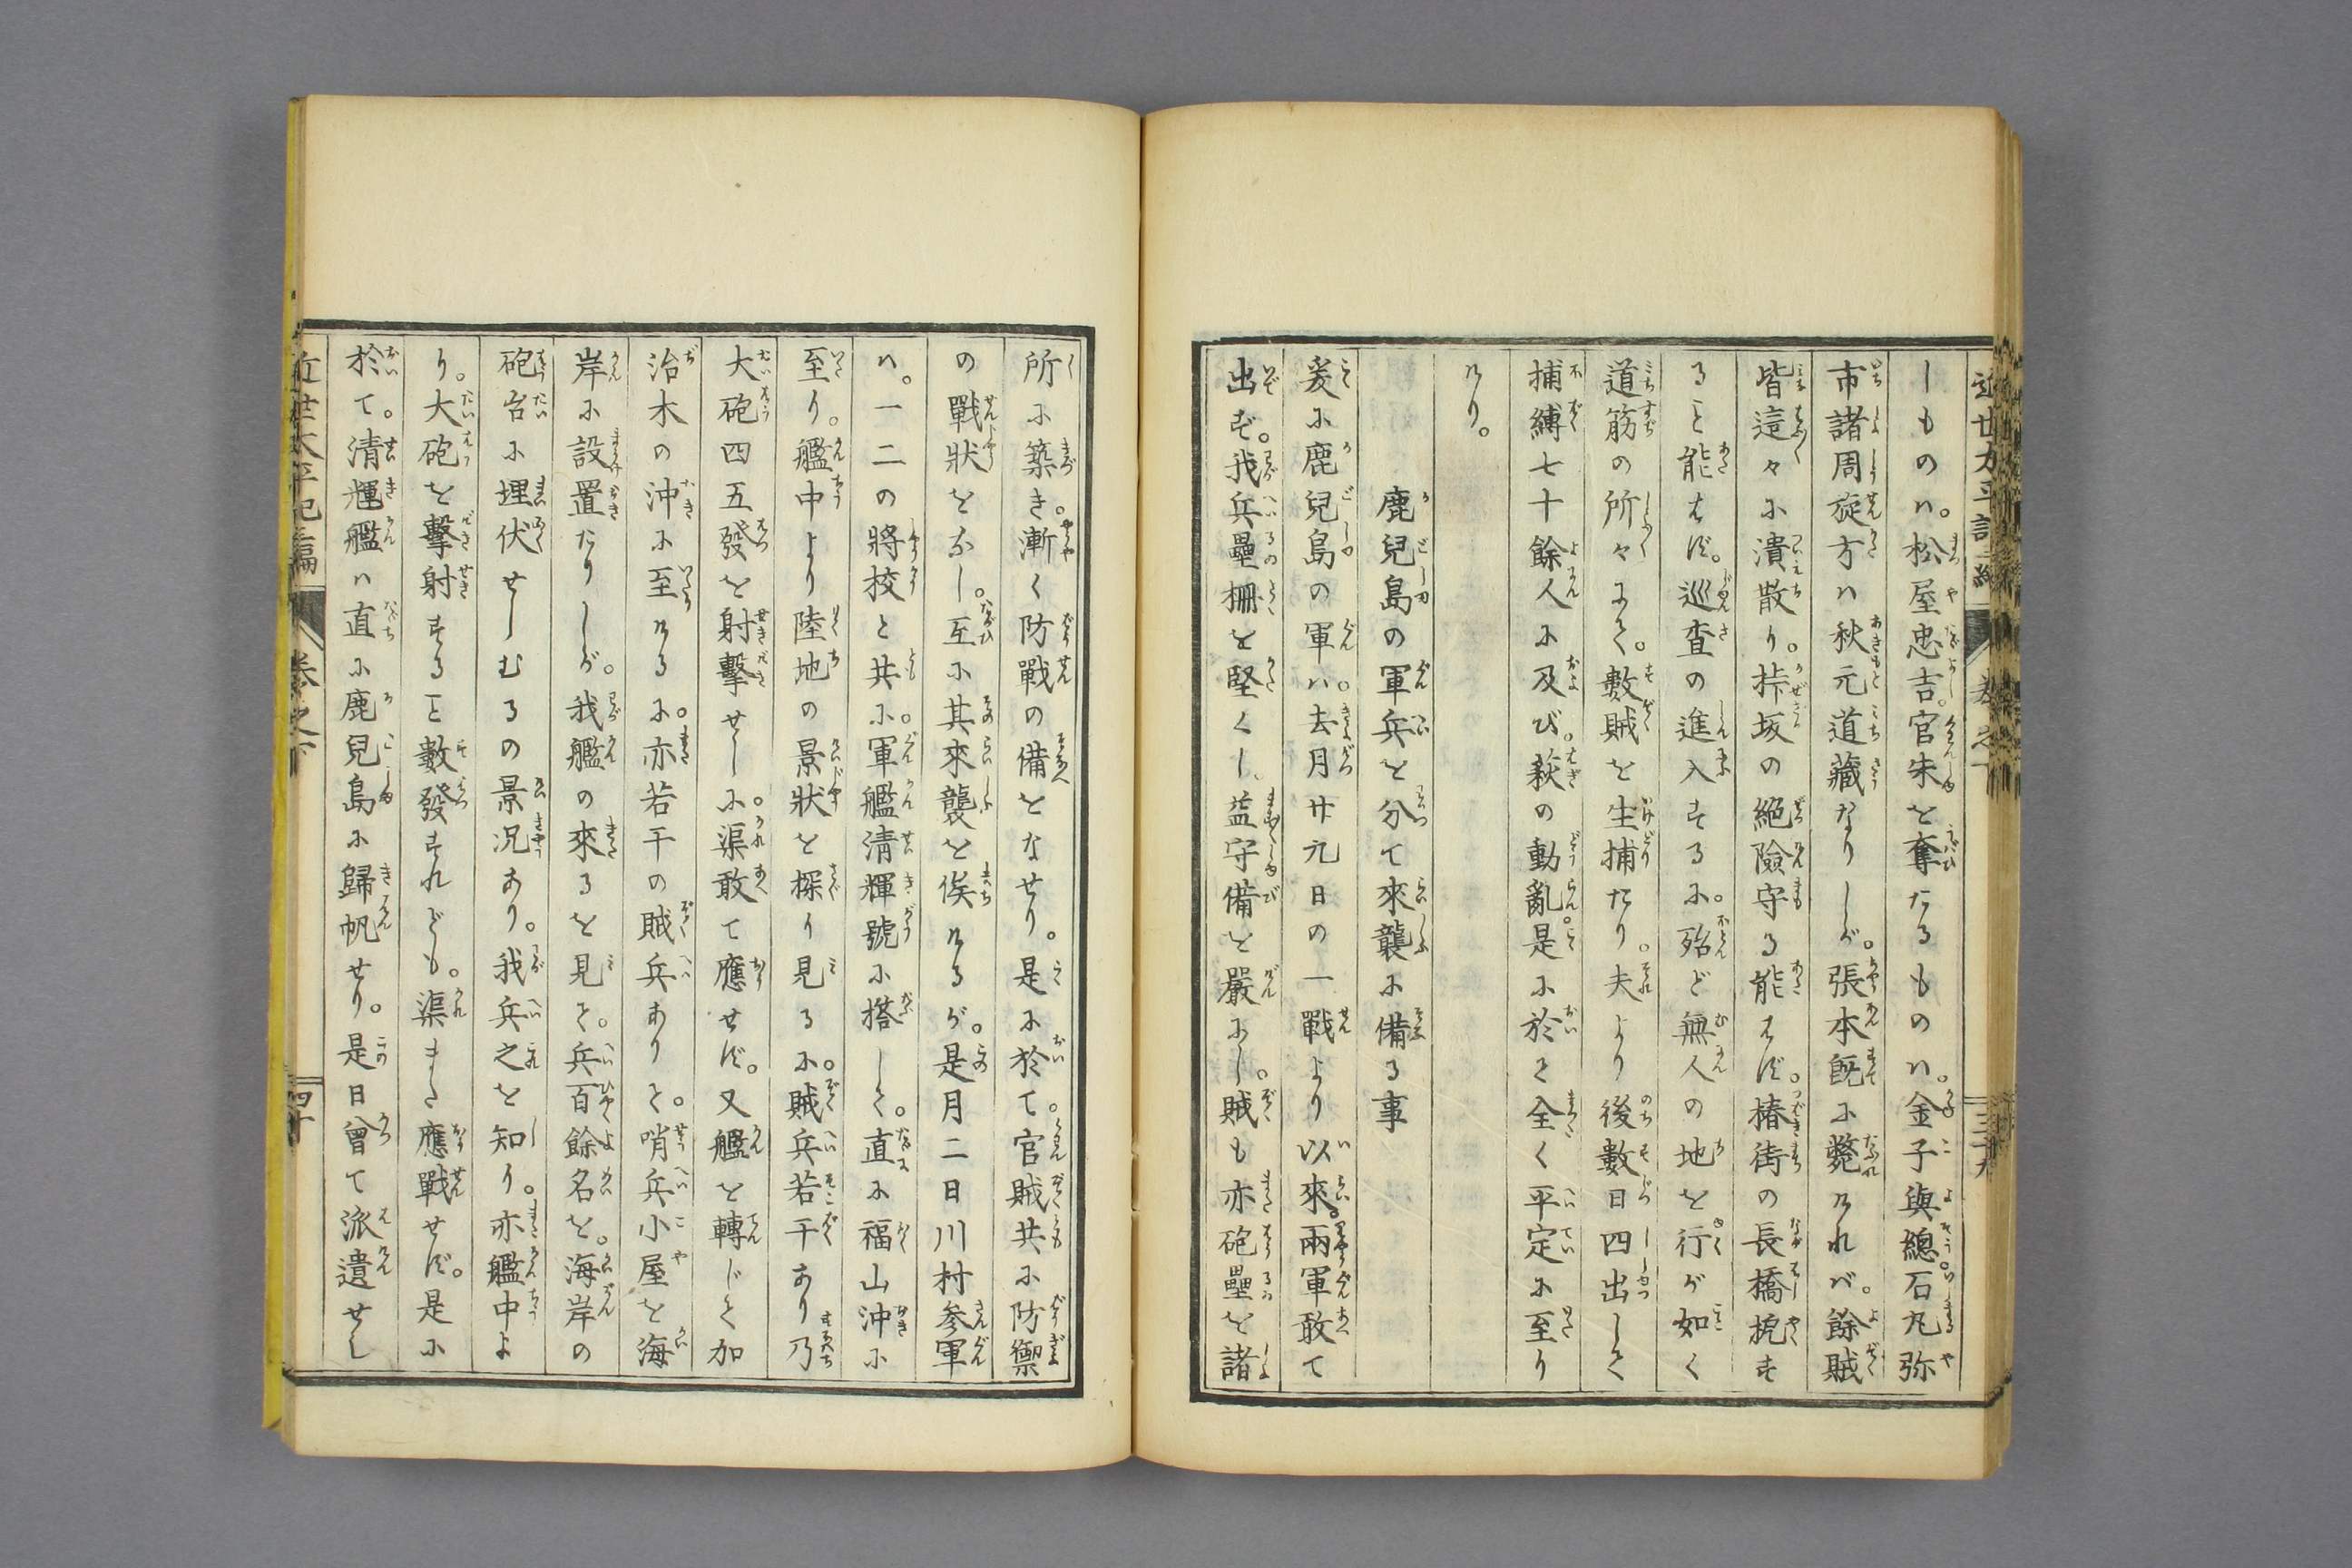 近世太平記二編 卷之下 三十九
しものハ。松屋忠吉。官朱を奪たるものハ。金子與總。石丸弥
市諸周旋方ハ秋元道藏なりしが。張本既に斃けれバ。餘賊
皆這々に潰散り。挊坂の絶險守る能はず。椿街の長橋扼す
ること能はず。巡査の進入するに。殆ど無人の地を行が如く
道筋の所々にて。數賊を生捕たり。夫より後數日四出して
捕縛七十餘人に及び。萩の動亂。是に於て全く平定に至り
けり。
鹿兒島の軍兵を分て來襲に備る事
爰に鹿兒島の軍ハ。去月廿九日の一戰より以來。兩軍敢て
出ず。我兵壘柵を堅くし。益守備を嚴にし。賊も亦砲壘を諸
所に築き。漸く防戰の備をなせり。是に於て。官賊共に防禦
の戰狀をなし。互に其來襲を俟けるが。是月二日川村参軍
ハ。一二の將校と共に。軍艦清輝號に搭して。直に福山沖に
至り。艦中より陸地の景狀を探り見るに。賊兵若干あり乃
大砲四五發を射擊せしに。渠敢て應せず。又艦を轉じて加
治木の沖に至けるに。亦若干の賊兵ありて。哨兵小屋を海
岸に設置たりしが。我艦の來るを見て。兵百餘名を。海岸の
砲台に埋伏せしむるの景况あり。我兵之を知り。亦艦中よ
り。大砲を擊射すること數發すれども。渠また應戰せず。是に
於て。清輝艦ハ直に鹿兒島に歸帆せり。是日曾て派遣せし
近世太平記二編 卷之下 四十